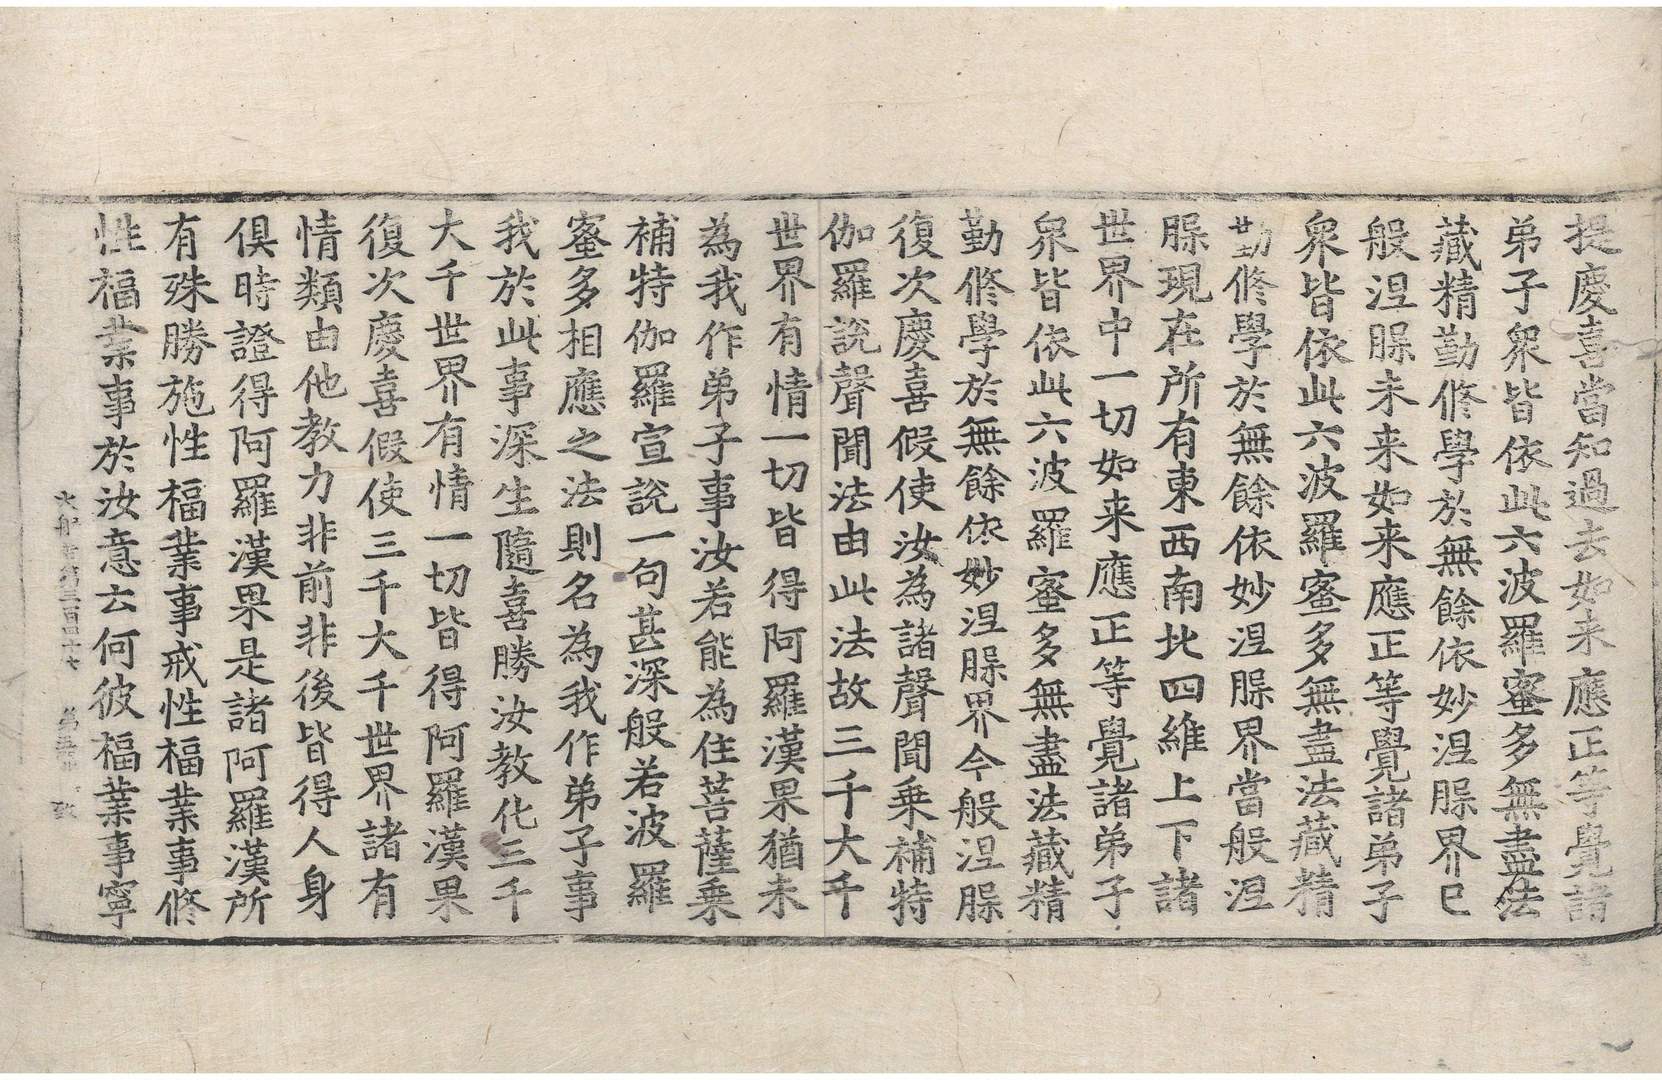 提慶喜當知過去如来應正等覺諸
弟子衆皆依此六波羅蜜多無盡法
藏精勤修學於無餘依妙涅槃界已
般涅槃未来如来應正等覺諸弟子
衆皆依此六波羅蜜多無盡法藏精
勤修學於無餘依妙涅槃界當般涅
槃現在所有東西南北四維上下諸
世界中一切如来應正等覺諸弟子
衆皆依此六波羅蜜多無盡法藏精
勤修學於無餘依妙涅槃界今般涅槃
復次慶喜假使汝為諸聲聞乗補特
伽羅說聲聞法由此法故三千大千
世界有情一切皆得阿羅漢果猶未
為我作弟子事汝若能為住菩薩乗
補特伽羅宣說一句甚深般若波羅
蜜多相應之法則名為我作弟子事
我於此事深生隨喜勝汝教化三千
大千世界有情一切皆得阿羅漢果
復次慶喜假使三千大千世界諸有
情類由他教力非前非後皆得人身
俱時證得阿羅漢果是諸阿羅漢所
有殊勝施性福業事戒性福業事修
性福業事於汝意云何彼福業事寧